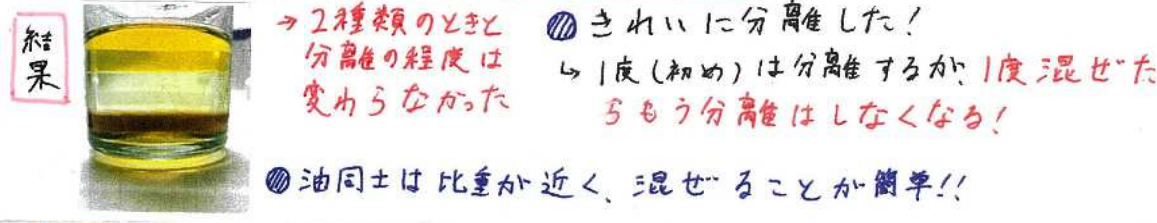 結果
→2種類のときと
分離の程度は
変わらなかった
きれいに分離した!
↳1度(初め)は分離するが、1度混ぜた
らもう分離はしなくなる!
油同士は比重が近く、混ぜることが簡単!!